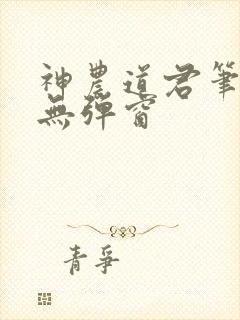 神農道君筆
無彈窗
青爭